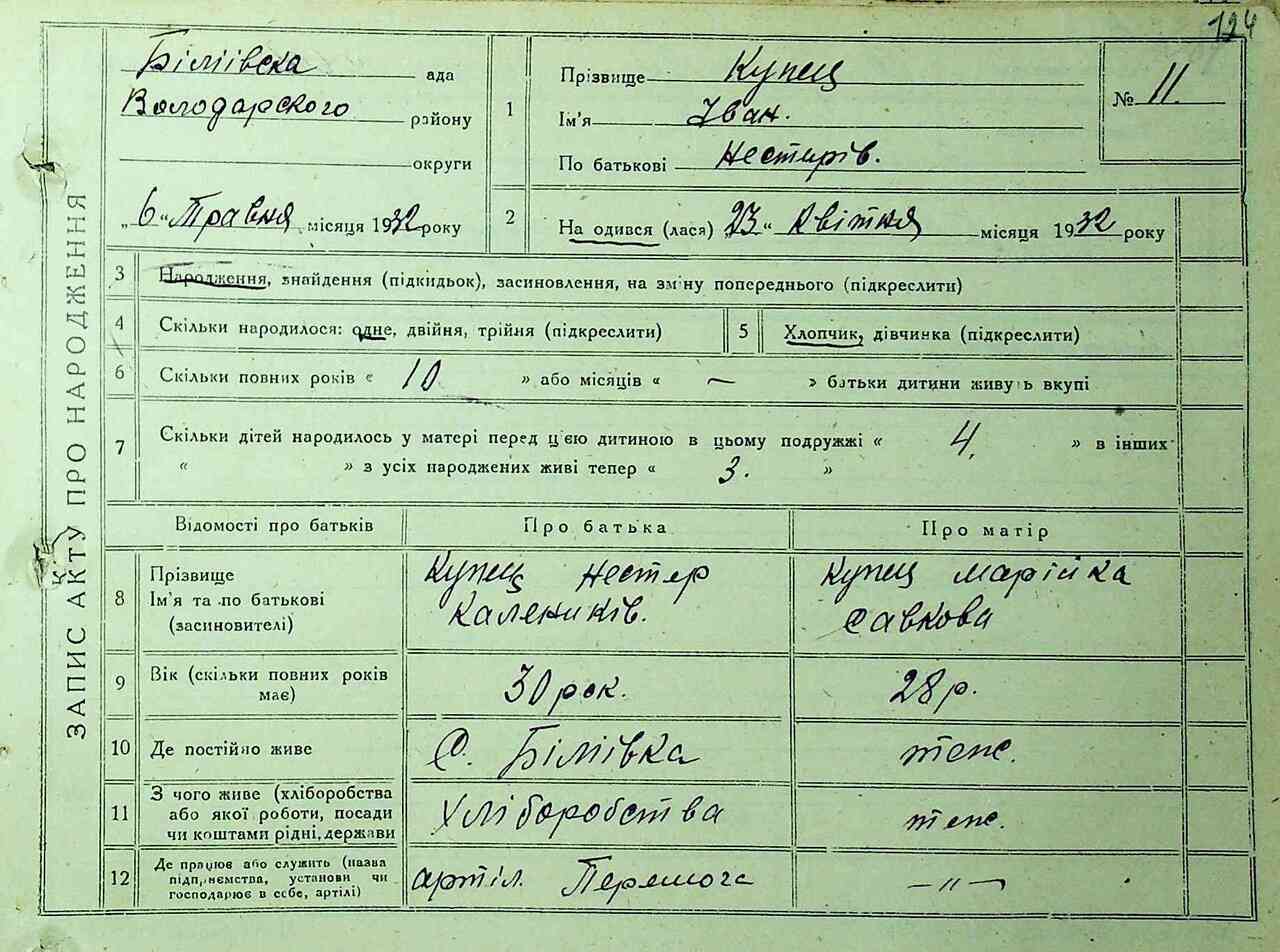 124
ЗАПИС АКТУ ПРО НАРОДЖЕННЯ
Біліївска ада
Володарского району
округи
„6“ Травня місяця 1932 року
1
Прізвище Купец
Ім'я Іван.
По батькові Нестерів.
№ 11.
2 На одився (лася) 23“ Квітня місяця 1932 року
3 Народження, знайдення (підкидьок), засиновлення, на зміну попереднього (підкреслити)
4 Скільки народилося: одне, двійня, трійня (підкреслити)
5 Хлопчик, дівчинка (підкреслити)
6 Скільки повних років « 10 » або місяців « — » батьки дитини живуть вкупі
7 Скільки дітей народилось у матері перед цією дитиною в цьому подружжі « 4. » в інших
« » з усіх народжених живі тепер « 3. »
Відомості про батьків Про батька Про матір
8 Прізвище
Ім'я та по батькові
(засиновителі)
Купец Нестер
Калеників.
Купец Марійка
Савкова
9 Вік (скільки повних років
має)
30 рок.
28 р.
10 Де постійно живе С. Біліївка теж.
11 З чого живе (хліборобства
або якої роботи, посади
чи коштами рідні, держави
Хліборобства
теж.
12 Де працює або служить (назва
підприємства, установи чи
господарює в себе, артілі)
артіл. Перемога
—〃—